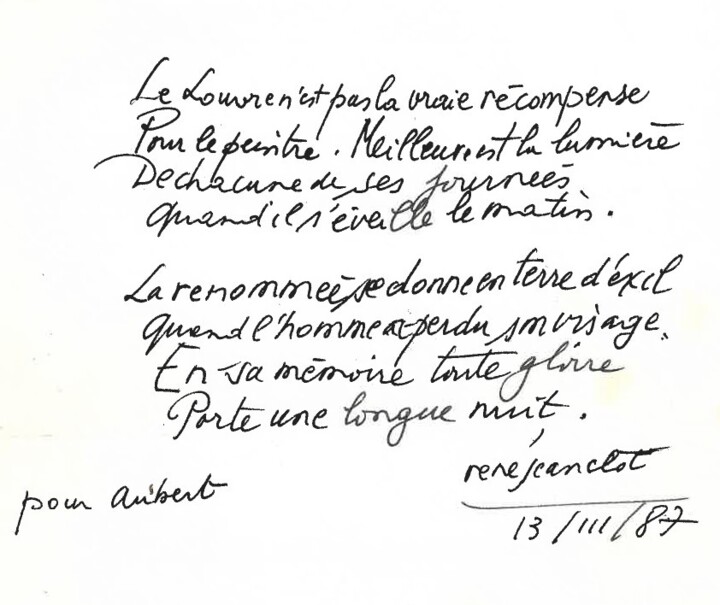 Le Louvre n'est pas la vraie récompense
Pour le peintre. Meilleure est la lumière
De chacune de ses journées
quand il s'éveille le matin.
La renommée se donne en terre d'éxil
quand l'homme a perdu son visage.
En sa mémoire toute gloire
Porte une longue nuit.
rené jean clot
pour aubert
13/III/87